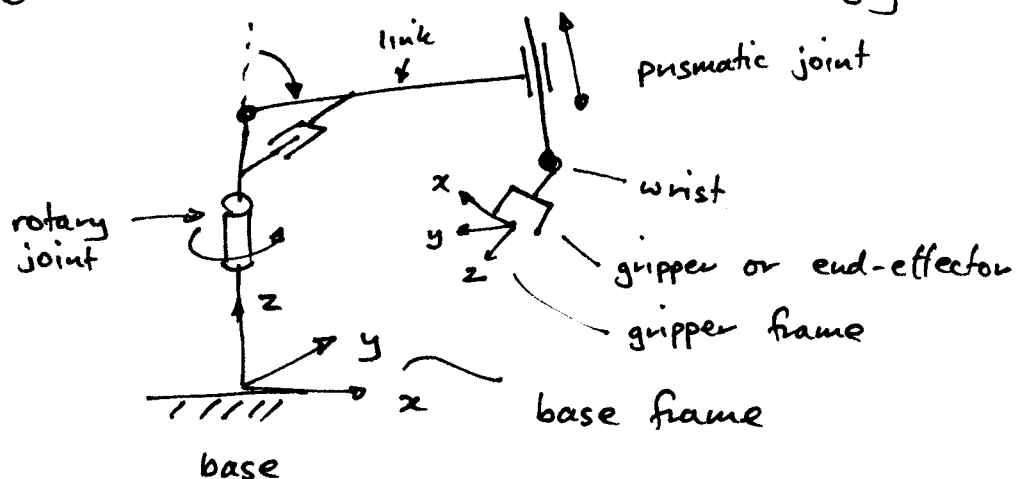 link
prismatic joint
x
wrist
rotary
joint
y
z
gripper or end-effector
gripper frame
z
y
x
base frame
base